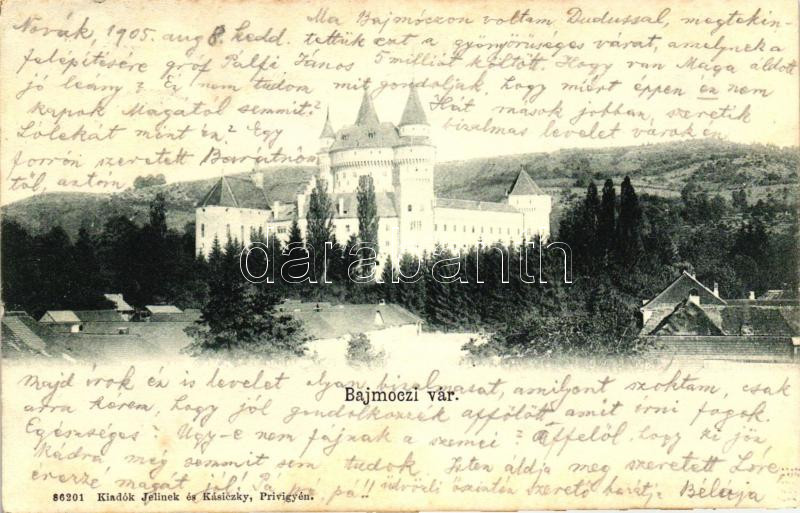 Novák, 1905. aug 8. kedd.
Ma Bajmóczon voltam Dudussal, megtekin-
tettük ezt a gyönyörűséges várat, amelynek a
felépítésére gróf Pálfi János 5 milliót költött. Hogy van Maga áldott
jó leány? Én nem tudom mit gondoljak, hogy miért éppen én nem
kapok Magától semmit? Hát mások jobban szeretik
Lólekát mint én? Egy bizalmas levelet várok én
forrón szeretett Barátnőm
től, aztán
darabanth
Majd írok én is levelet olyan bizalmasat, amilyent szoktam, csak
arra kérem, hogy jól gondolkozzék affölött amit írni fogok.
Egészséges? Ugy-e nem fájnak a szemei? Affelől, hogy ki jön
Kadra még semmit sem tudok. Isten áldja meg szeretett Lóre
érezze magát jól! Pá pá!! üdvözli őszintén szerető barátja Bélája
Bajmóczi vár.
86201 Kiadók Jelinek és Kásiczky, Privigyén.